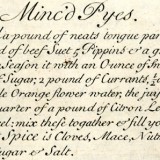 Minc'd Pyes.
a pound of neats tongue par
d of beef Suet 5 Pippins & a g
Season it with an Ounce of Sm
Sugar, 2 pound of Currants, ½
le Orange flower water, the juy
quarter of a pound of Citron Le
eel: mix these together & fill yo
Spice is Cloves, Mace, Nutm
ugar & Salt.